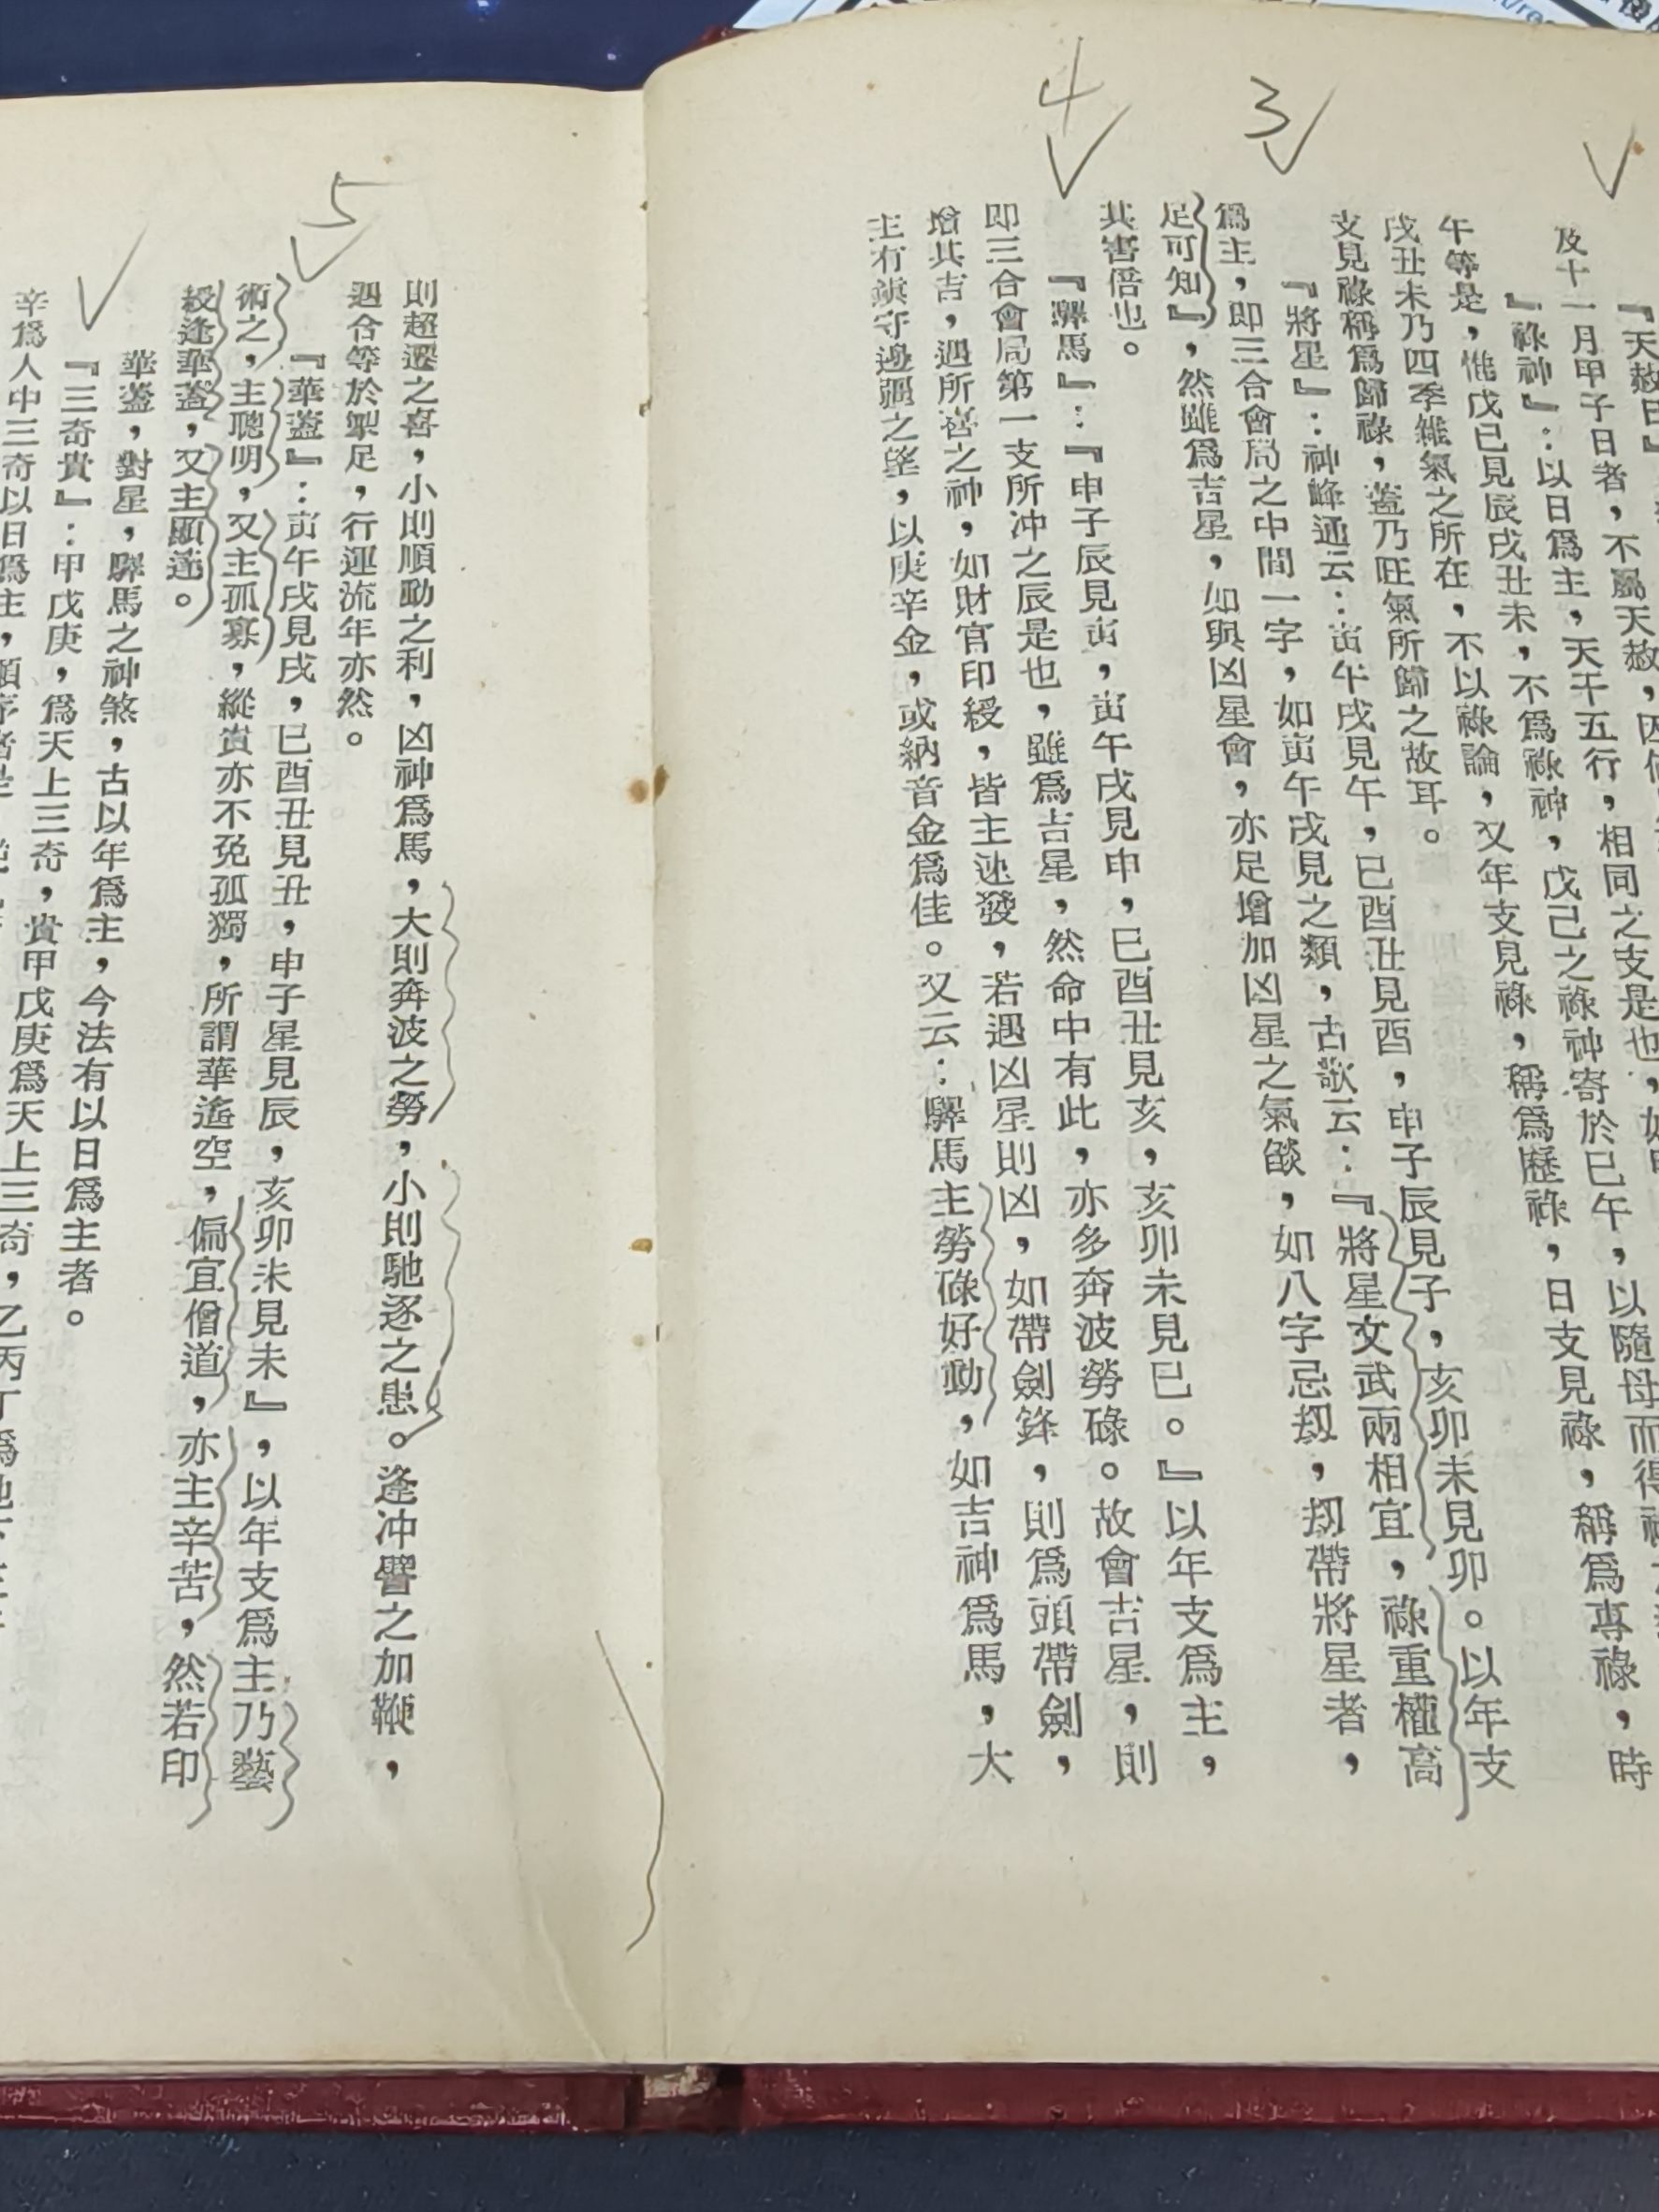 4
3
『天赦日』
及十一月甲子日者，不屬天赦，因
『祿神』：以日爲主，天干五行，相同之支是也，如
午等是，惟戊己見辰戌丑未，不爲祿神，戊己之祿神寄於巳午，以隨母而得祿
戌丑未乃四季雜氣之所在，不以祿論，又年支見祿，稱爲歷祿，日支見祿，稱爲專祿，時
支見祿稱爲歸祿，蓋乃旺氣所歸之故耳。
『將星』：神峰通云：寅午戌見午，巳酉丑見酉，申子辰見子，亥卯未見卯。以年支
爲主，即三合會局之中間一字，如寅午戌見之類，古歌云：『將星文武兩相宜，祿重權高
足可知』，然雖爲吉星，如與凶星會，亦足增加凶星之氣燄，如八字忌刼，刼帶將星者，
其害倍也。
『驛馬』：『申子辰見寅，寅午戌見申，巳酉丑見亥，亥卯未見巳。』以年支爲主，
即三合會局第一支所冲之辰是也，雖爲吉星，然命中有此，亦多奔波勞碌。故會吉星，則
增其吉，遇所喜之神，如財官印綬，皆主速發，若遇凶星則凶，如帶劍鋒，則爲頭帶劍，
主有鎮守邊疆之望，以庚辛金，或納音金爲佳。又云：驛馬主勞碌好動，如吉神爲馬，大
5
則超遷之喜，小則順動之利，凶神爲馬，大則奔波之勞，小則馳逐之患。逢冲譬之加鞭，
遇合等於掣足，行運流年亦然。
『華蓋』：寅午戌見戌，巳酉丑見丑，申子星見辰，亥卯未見未』，以年支爲主乃藝
術之，主聰明，又主孤寡，縱貴亦不免孤獨，所謂華遙空，偏宜僧道，亦主辛苦，然若印
綬逢華蓋，又主顯達。
華蓋，對星，驛馬之神煞，古以年爲主，今法有以日爲主者。
『三奇貴』：甲戊庚，爲天上三奇，貴甲戊庚爲天上三奇，乙丙丁爲地下三
辛爲人中三奇以日爲主，順序者是